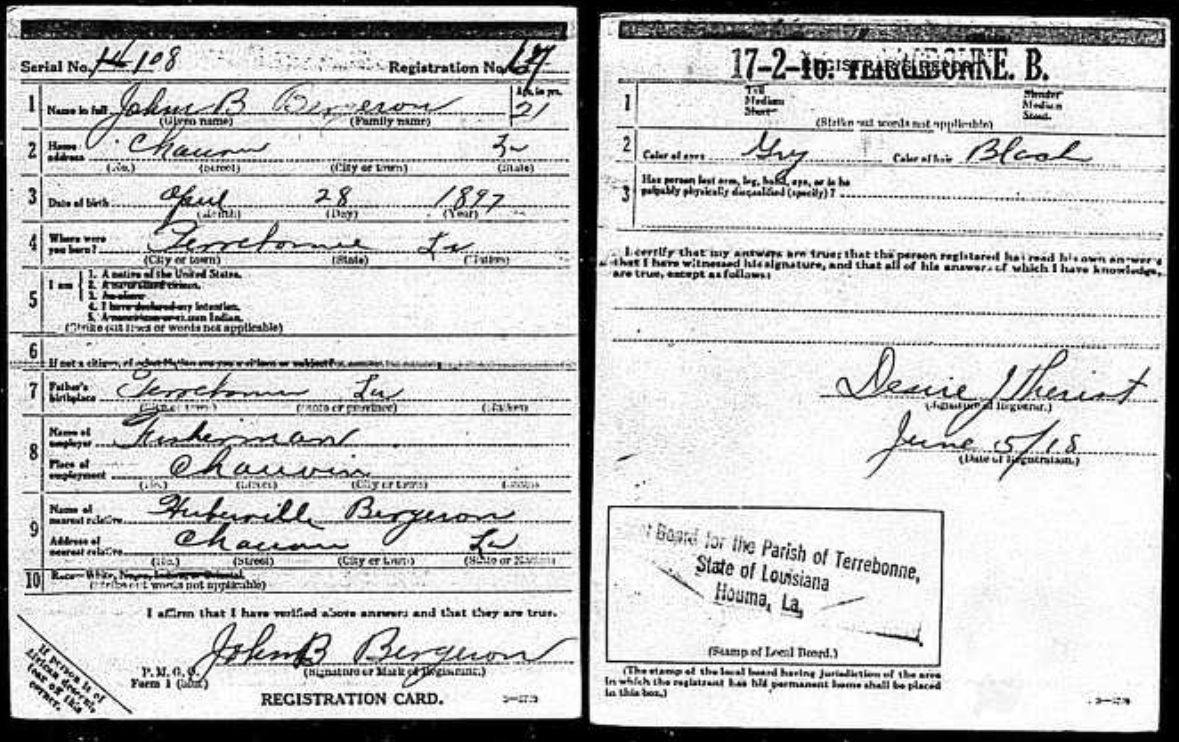 Serial No. 108 Registration No.
1 Name in full John B Bergeron Age, in yrs. 21
(Given name) (Family name)
2 Home address Chauvin La
(No.) (Street) (City or town) (State)
3 Date of birth April 28 1897
(Month) (Day) (Year)
4 Where were you born? Terrebonne La
(City or town) (State) (Nation)
5 I am
1. A native of the United States.
2. A naturalized citizen.
3. An alien
4. I have declared my intention.
5. A noncitizen or citizen Indian.
(Strike out lines or words not applicable)
6 If not a citizen, of what Nation are you a citizen or subject?
7 Father's birthplace Terrebonne La
(City or town) (State or province) (Nation)
8 Name of employer Fisherman
Place of employment Chauvin
(No.) (Street) (City or town) (State)
9 Name of nearest relative Bergeron
Address of nearest relative Chauvin La
(No.) (Street) (City or town) (State or Nation)
10 Race—White, Negro, Indian, or Oriental.
(Strike out words not applicable)
I affirm that I have verified above answers and that they are true.
John B Bergeron
P. M. G. O.
Form 1 (Signature or Mark of Registrant.)
If person is of African descent, tear off this corner.
REGISTRATION CARD.
17-2-16. TERREBONNE. B.
REGISTRAR'S REPORT
1 Tall Medium Short Slender Medium Stout.
(Strike out words not applicable)
2 Color of eyes Gry Color of hair Black
3 Has person lost arm, leg, hand, eye, or is he
palpably physically disqualified (specify)?
I certify that my answers are true; that the person registered has read his own answers
that I have witnessed his signature, and that all of his answers of which I have knowledge,
are true, except as follows:
Desire J Theriot
(Signature of Registrar.)
June 5/18
(Date of Registration.)
Board for the Parish of Terrebonne,
State of Louisiana
Houma, La,
(Stamp of Local Board.)
(The stamp of the local board having jurisdiction of the area
in which the registrant has his permanent home shall be placed
in this box.)